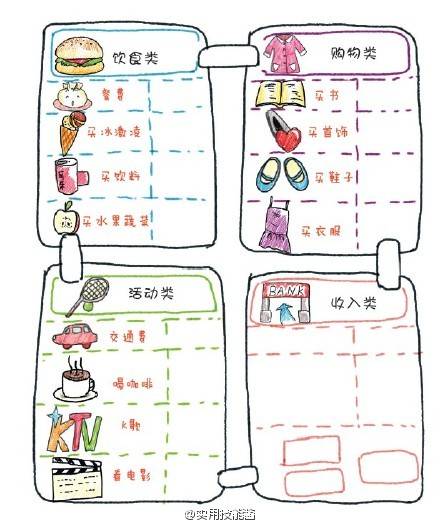 饮食类
餐费
买冰激凌
买饮料
买水果蔬菜
购物类
买书
买首饰
买鞋子
买衣服
活动类
交通费
喝咖啡
KTV
K歌
看电影
BANK
收入类
@实用技能酱